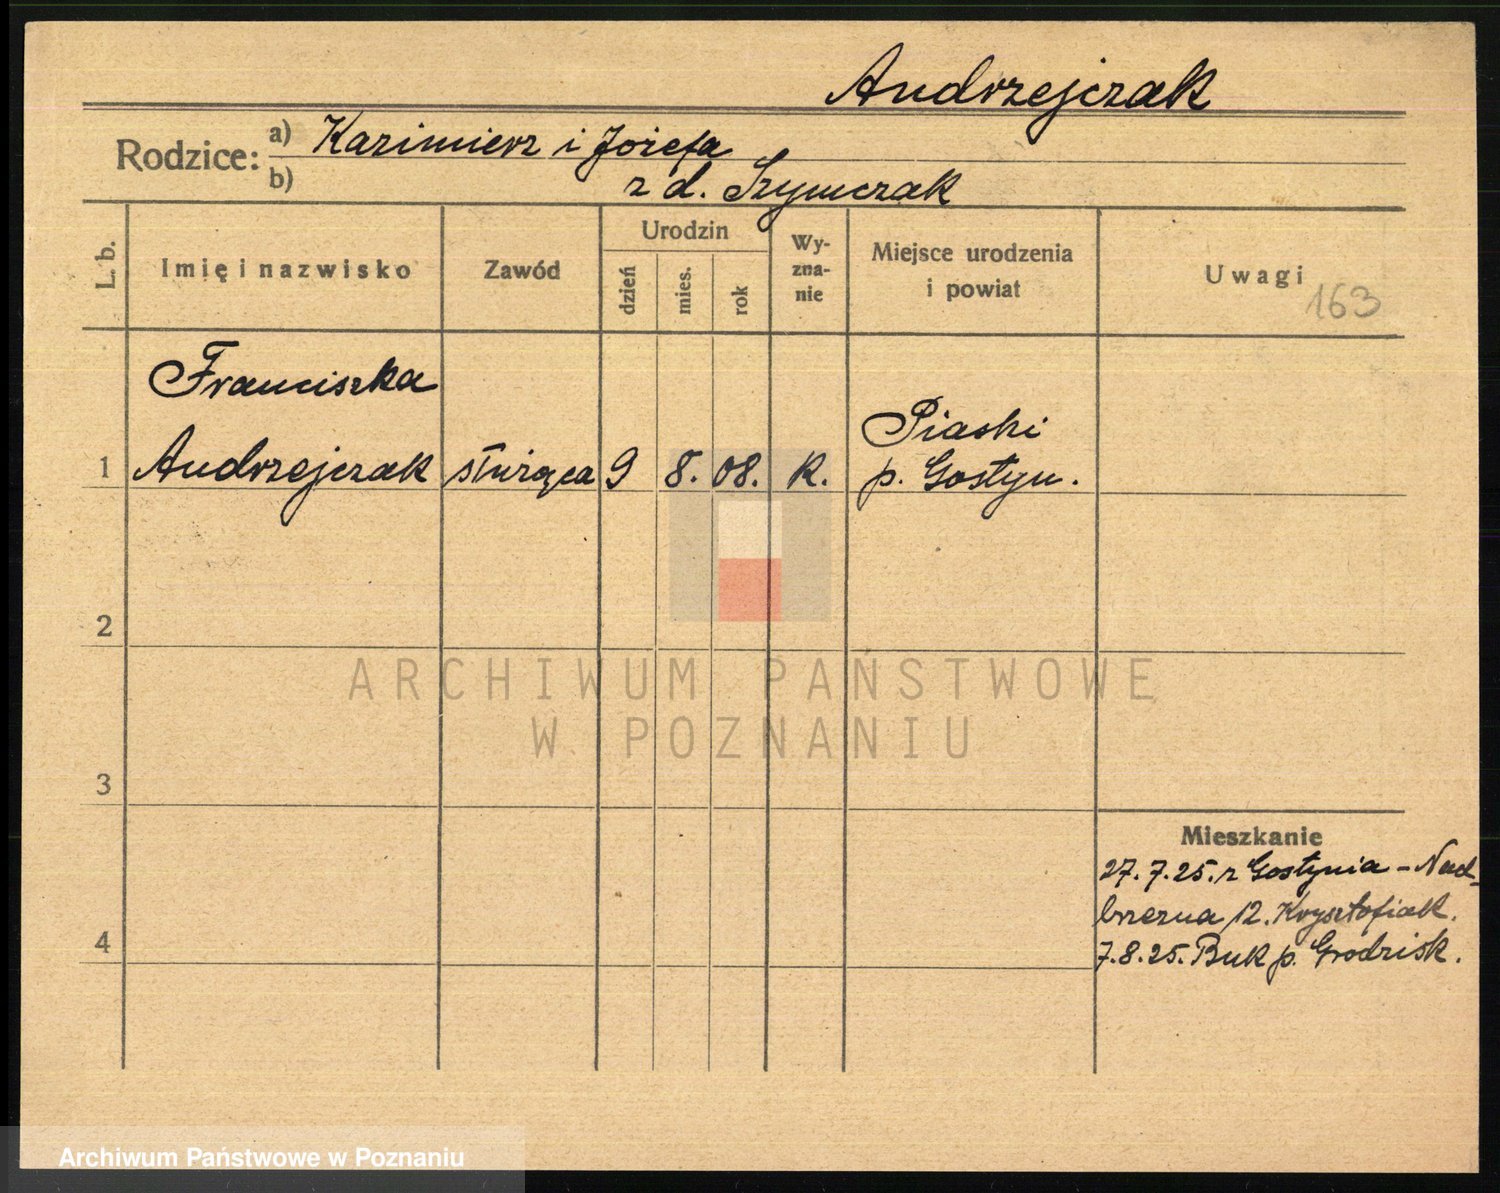 Andrzejczak
Rodzice: a) Kazimierz i Józefa
b) z d. Szymczak
L. b.
Imię i nazwisko
Zawód
Urodzin
dzień
mies.
rok
Wy-
zna-
nie
Miejsce urodzenia
i powiat
Uwagi
163
Franciszka
1 Andrzejczak służąca 9 8. 08. K. Piaski
p. Gostyn.
2
3
4
Mieszkanie
27. 7. 25. z Gostynia - Nad-
brzezna 12. Krysztofiak.
7. 8. 25. Buk p. Grodzisk.
ARCHIWUM PAŃSTWOWE
W POZNANIU
Archiwum Państwowe w Poznaniu